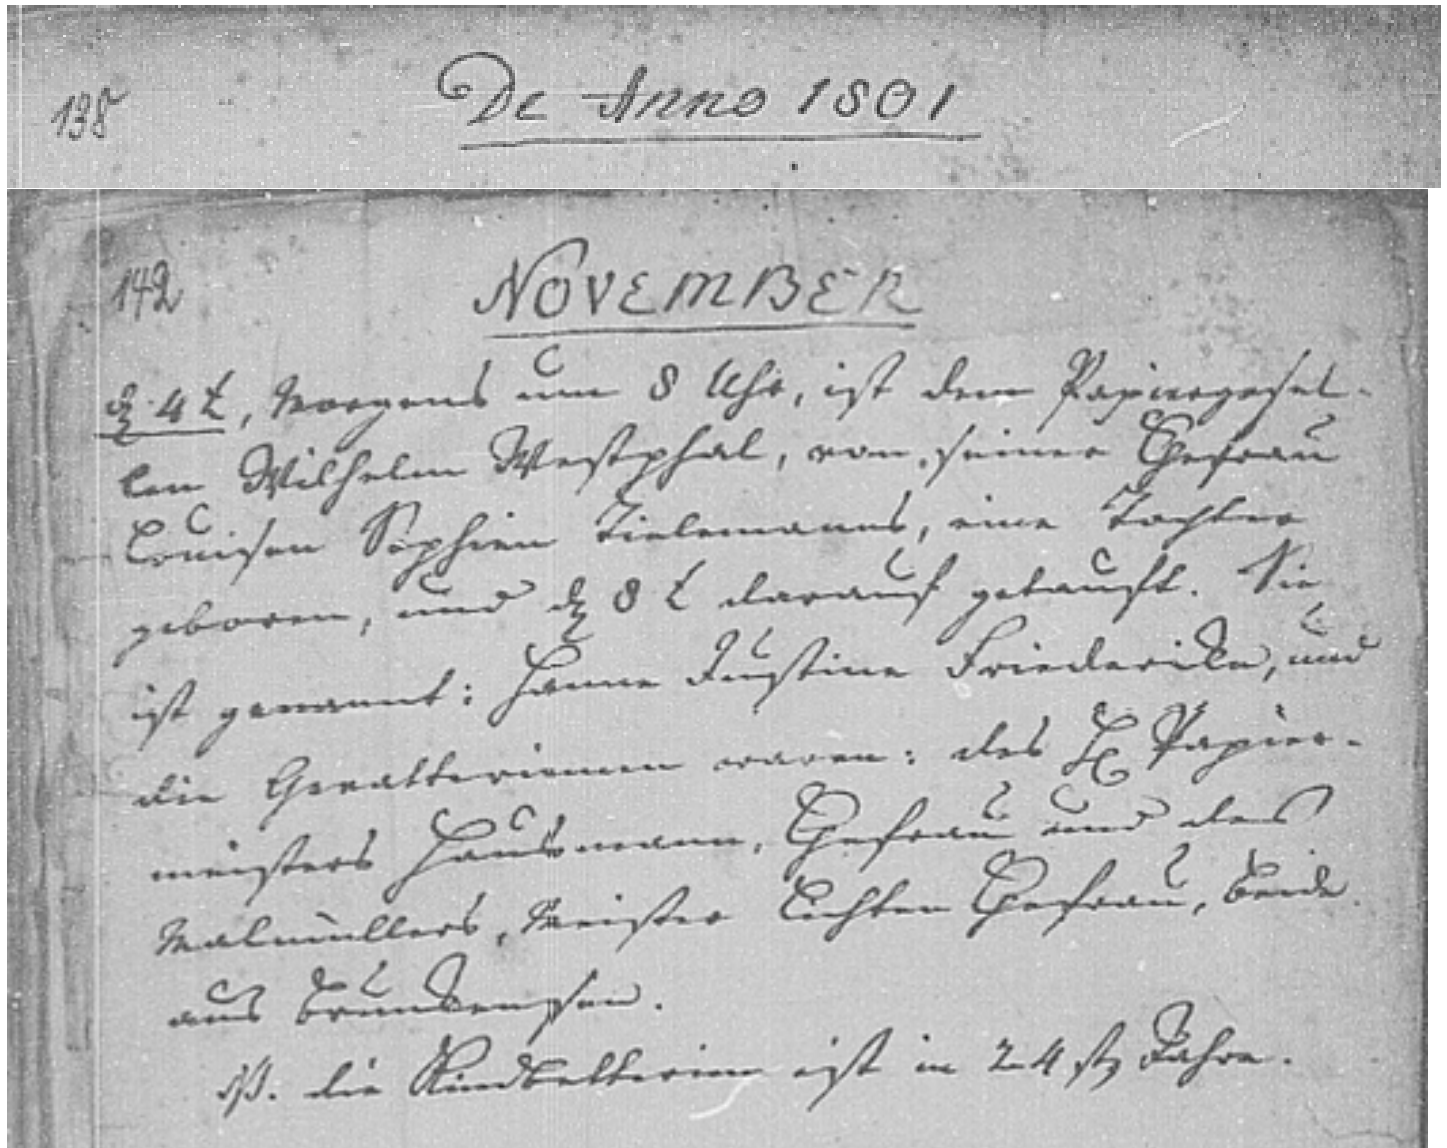 138
De Anno 1801
142
NOVEMBER
d. 4 t, Morgens um 8 Uhr, ist dem Papiergesel-
len Wilhelm Westphal, von seiner Ehefrau
Louisen Sophien Tielemanns, eine Tochter
geboren, und d. 8 t darauf getauft. Sie
ist genannt: Hanne Justine Friedericke, und
die Gevatterinnen waren: des H. Papier-
meisters Hausmann, Ehefrau und des
Malmüllers, Meister Lichten Ehefrau, beide
aus Brunkensen.
die Kindbetterinn ist in 24 st Jahre.